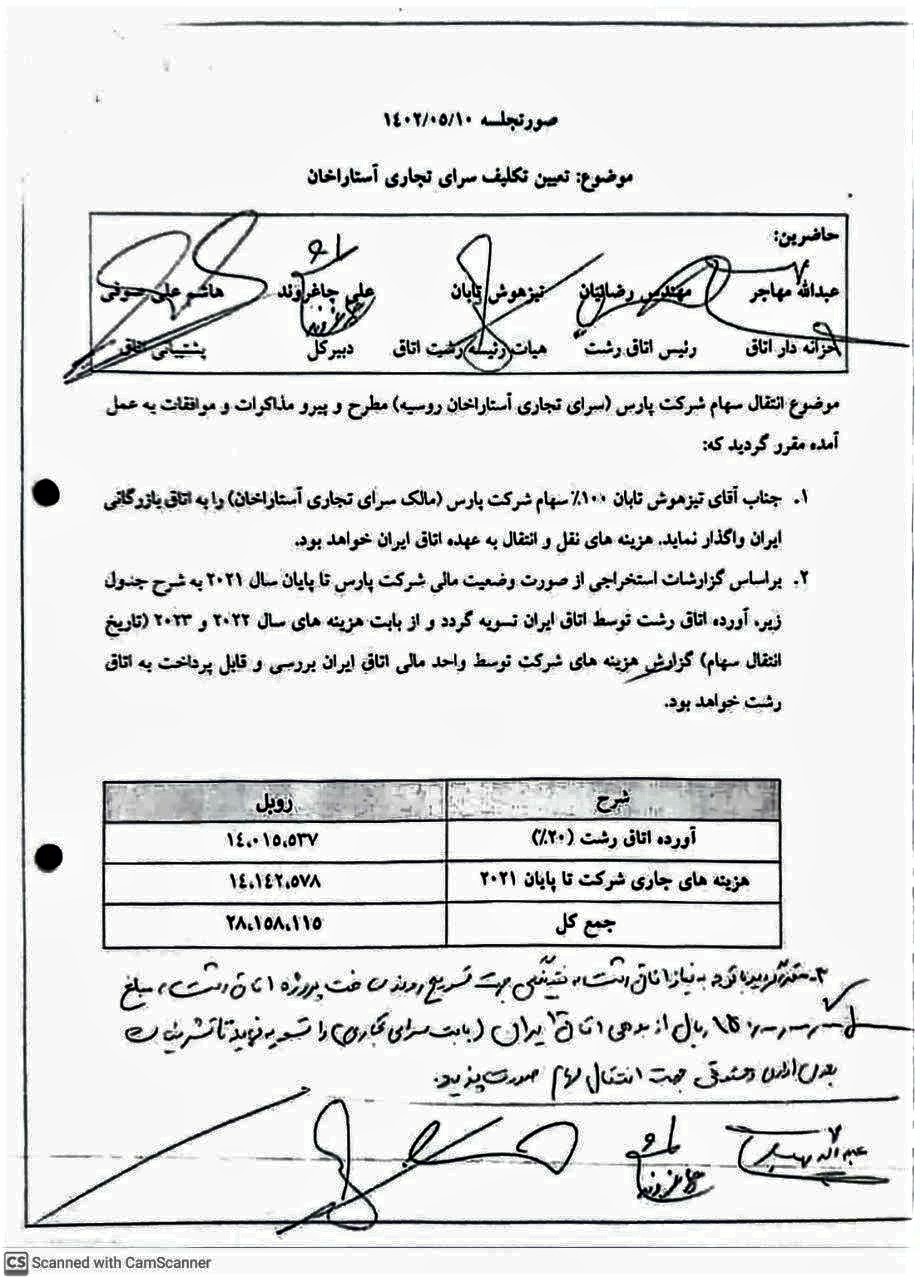 صورتجلسه ۱۴۰۲/۰۵/۱۰
موضوع: تعیین تکلیف سرای تجاری آستاراخان
حاضرین:
عبدالله مهاجر مهندس رضائیان تیزهوش تابان علی چاغروند هاشم علی صوفی
خزانه دار اتاق رئیس اتاق رشت هیات رئیسه رشت اتاق دبیرکل پشتیبانی اتاق
موضوع انتقال سهام شرکت پارس (سرای تجاری آستاراخان روسیه) مطرح و پیرو مذاکرات و موافقات به عمل
آمده مقرر گردید که:
۱. جناب آقای تیزهوش تابان ۱۰۰٪ سهام شرکت پارس (مالک سرای تجاری آستاراخان) را به اتاق بازرگانی
ایران واگذار نماید. هزینه های نقل و انتقال به عهده اتاق ایران خواهد بود.
۲. براساس گزارشات استخراجی از صورت وضعیت مالی شرکت پارس تا پایان سال ۲۰۲۱ به شرح جدول
زیر، آورده اتاق رشت توسط اتاق ایران تسویه گردد و از بابت هزینه های سال ۲۰۲۲ و ۲۰۲۳ (تاریخ
انتقال سهام) گزارش هزینه های شرکت توسط واحد مالی اتاق ایران بررسی و قابل پرداخت به اتاق
رشت خواهد بود.
شرح روبل
آورده اتاق رشت (۲۰٪) ۱۴،۰۱۵،۵۳۷
هزینه های جاری شرکت تا پایان ۲۰۲۱ ۱۴،۱۴۲،۵۷۸
جمع کل ۲۸،۱۵۸،۱۱۵
۳- مقرر گردید با توجه به نیاز اتاق رشت به نقدینگی جهت تسریع روند ساخت پروژه اتاق رشت، مبلغ
ریال از بدهی اتاق ایران (بابت سرای تجاری) را تسویه نماید تا تشریفات
اداری و حقوقی جهت انتقال سهام صورت پذیرد.
عبداله مهاجر
CS Scanned with CamScanner